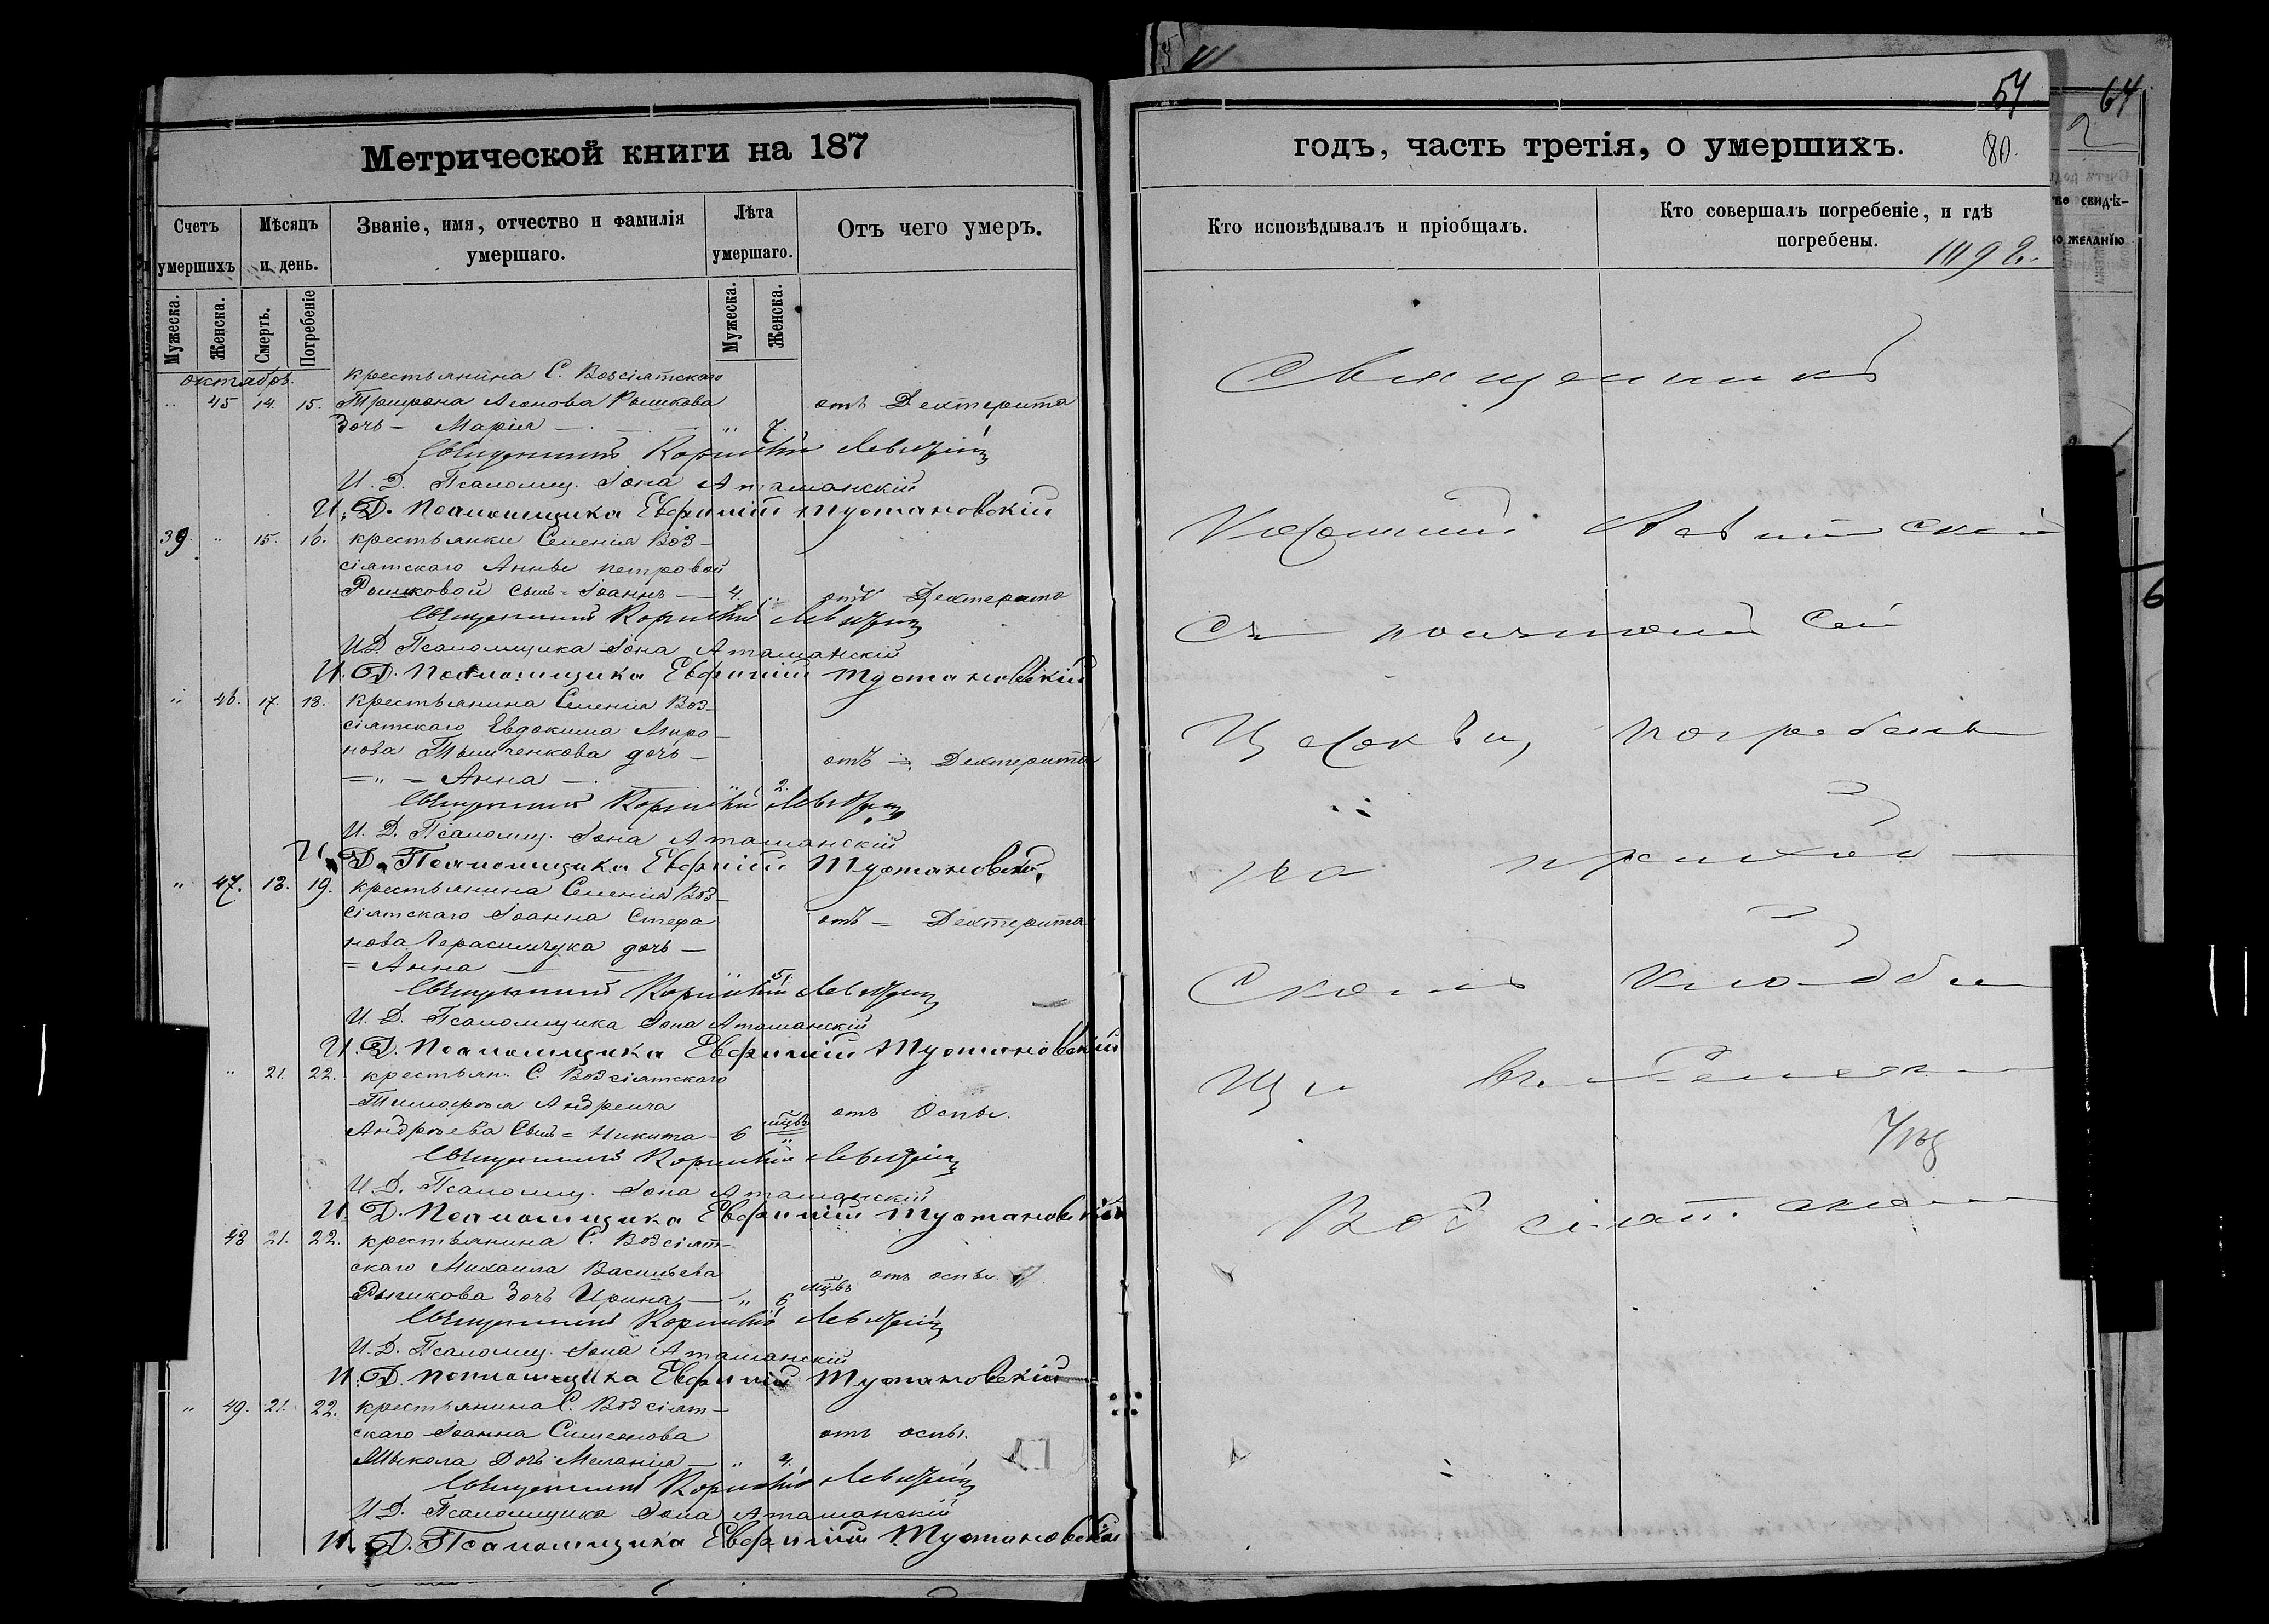 Метрической книги на 187
Счетъ умершихъ
Мѣсяцъ и день.
Званіе, имя, отчество и фамилія умершаго.
Лѣта умершаго.
Отъ чего умеръ.
Мужеска.
Женска.
Смерть.
Погребеніе
Мужеска.
Женска.
октября.
крестьянина С. Возсіятскаго
45 14. 15. Трифона Леонова Рошкова отъ Дехтерита
дочь – Марія – „ 7.
Священникъ Корнилій
И. Д. Псаломщ. Іона Аташанскій
И. Д. Псаломщика Евфимій Тустановскій
39. „ 15. 16. крестьянки Селенія Воз-
сіятскаго Анны Петровой
Рошковой сынъ = Іоаннъ – 4. „ отъ Дехтерита
Священникъ Корнилій
ИД Псаломщика Іона Аташанскій
И. Д. Псаломщика Евфимій Тустановскій
„ 46. 17. 18. крестьянина Селенія Воз-
сіятскаго Евдокима Миро-
нова дочь – отъ = Дехтерита
= „ = Анна – „ 2.
Священникъ Корнилій
И. Д. Псаломщ. Іона Аташанскій
И. Д. Псаломщика Евфимій Тустановскій
„ 47. 18. 19. крестьянина Селенія Воз-
сіятскаго Іоанна Стефа отъ = Дехтерита
нова Герасимчука дочь –
= Анна – „ 5.
Священникъ Корнилій
И. Д. Псаломщика Іона Аташанскій
И. Д. Псаломщика Евфимій Тустановскій
„ 21. 22. крестьян. С. Возсіятскаго
Тимофея Андреича отъ Оспы.
Андрѣева Сынъ = Никита – 6 мцвъ „
Священникъ Корнилій
И Д. Псаломщ. Іона Аташанскій
И. Д. Псаломщика Евфимій Тустановскій
48 21. 22. крестьянина С. Возсіят-
скаго Михаила Васильева отъ оспы.
дочь Ирина – „ 6 мцвъ
Священникъ Корнилій
И. Д. Псаломщ. Іона Аташанскій
И. Д. Псаломщика Евфимій Тустановскій
„ 49. 21. 22. крестьянина С. Возсіят-
скаго Іоанна Симеонова отъ оспы.
Дочь Меланія – „ 4.
Священникъ Корнилій
И Д. Псаломщика Іона Аташанскій
И. Д. Псаломщика Евфимій Тустановскій
54
80.
годъ, часть третія, о умершихъ.
Кто исповѣдывалъ и пріобщалъ.
Кто совершалъ погребеніе, и гдѣ погребены.
Священникъ
Корнилій
Съ сей
Церкви, погребены
на приход
скомъ кладби
щѣ въ Селеніи
Возсіятскомъ
64
2
свидѣ-
желанію